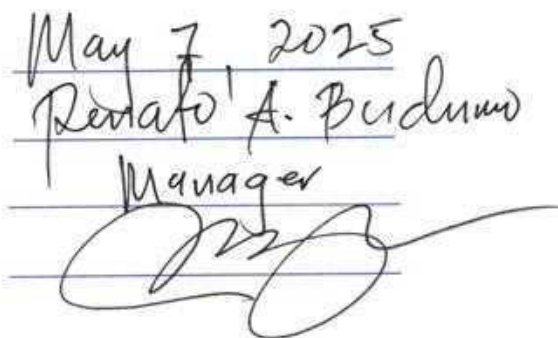 May 7, 2025
Renato A. Budumo
Manager